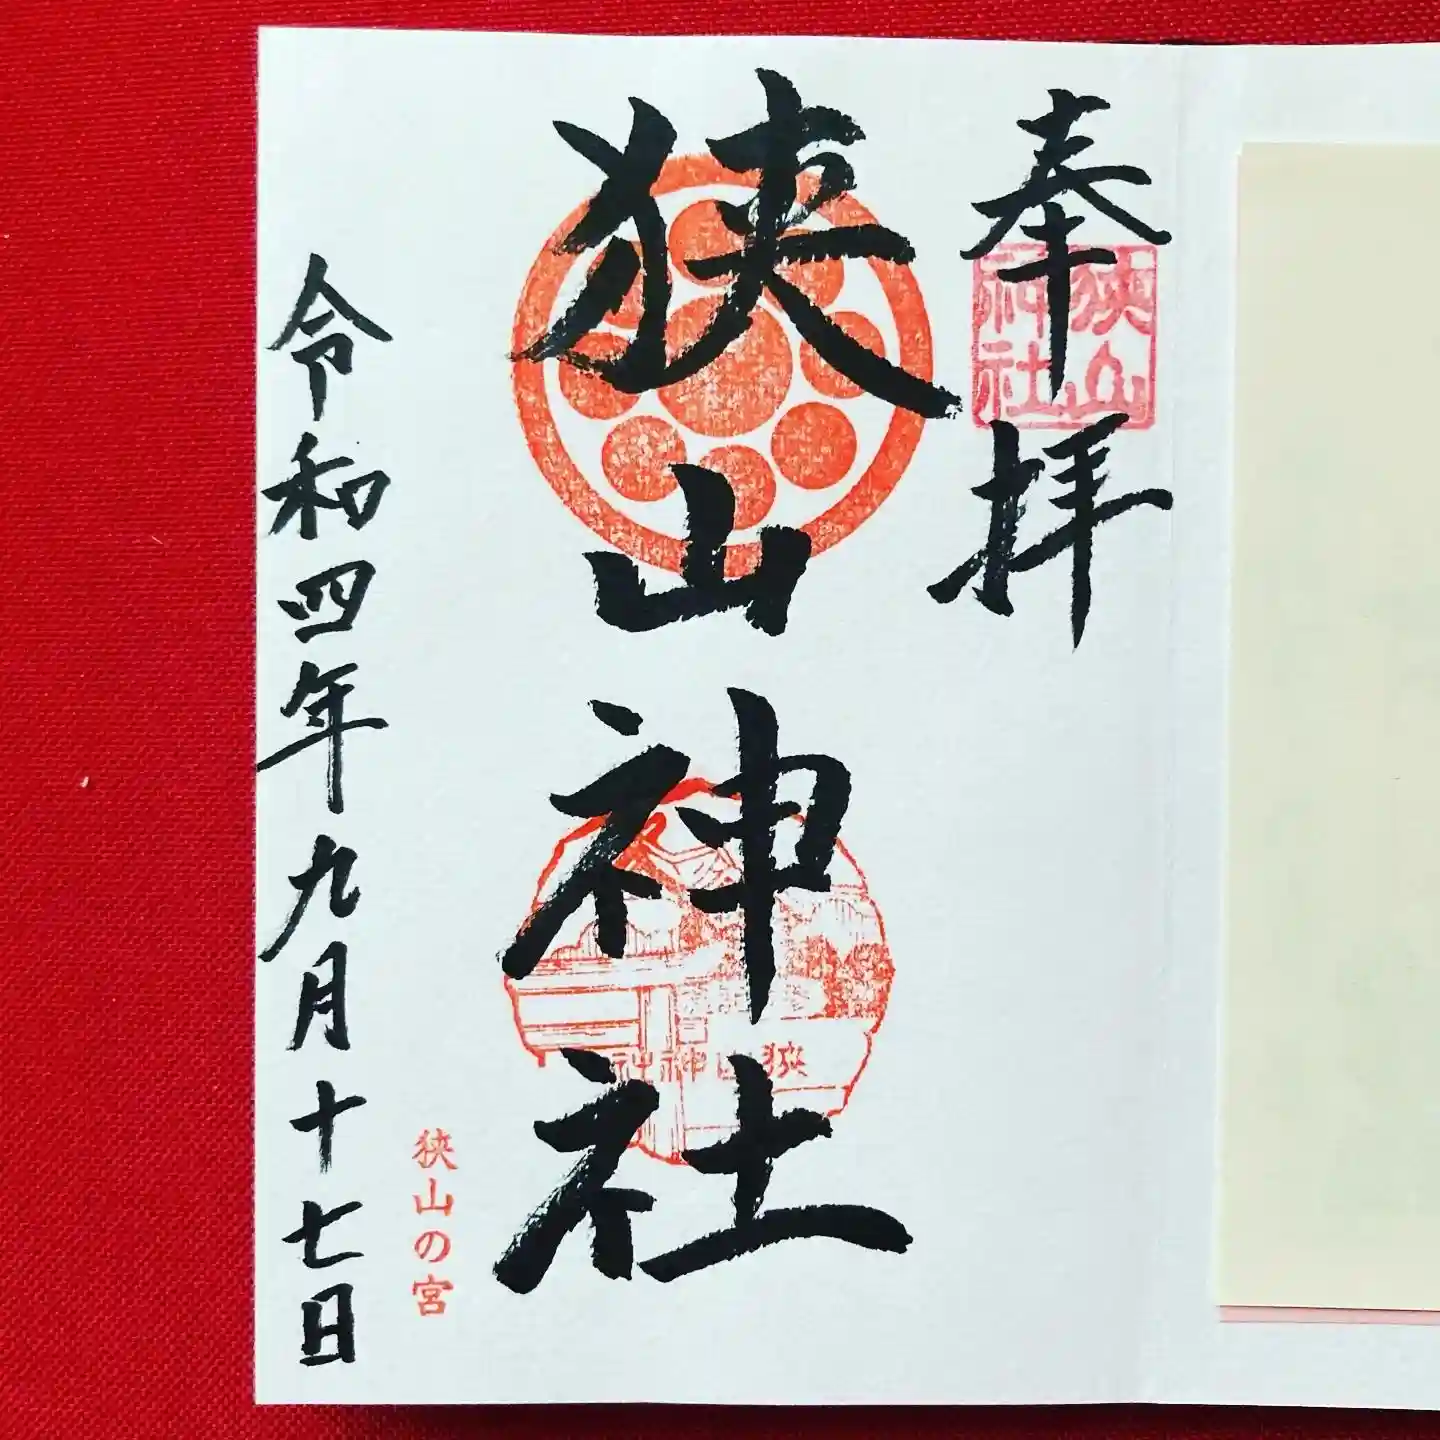 奉拝
狭山神社
狭山神社
狭山神社
狭山の宮
令和四年九月十七日